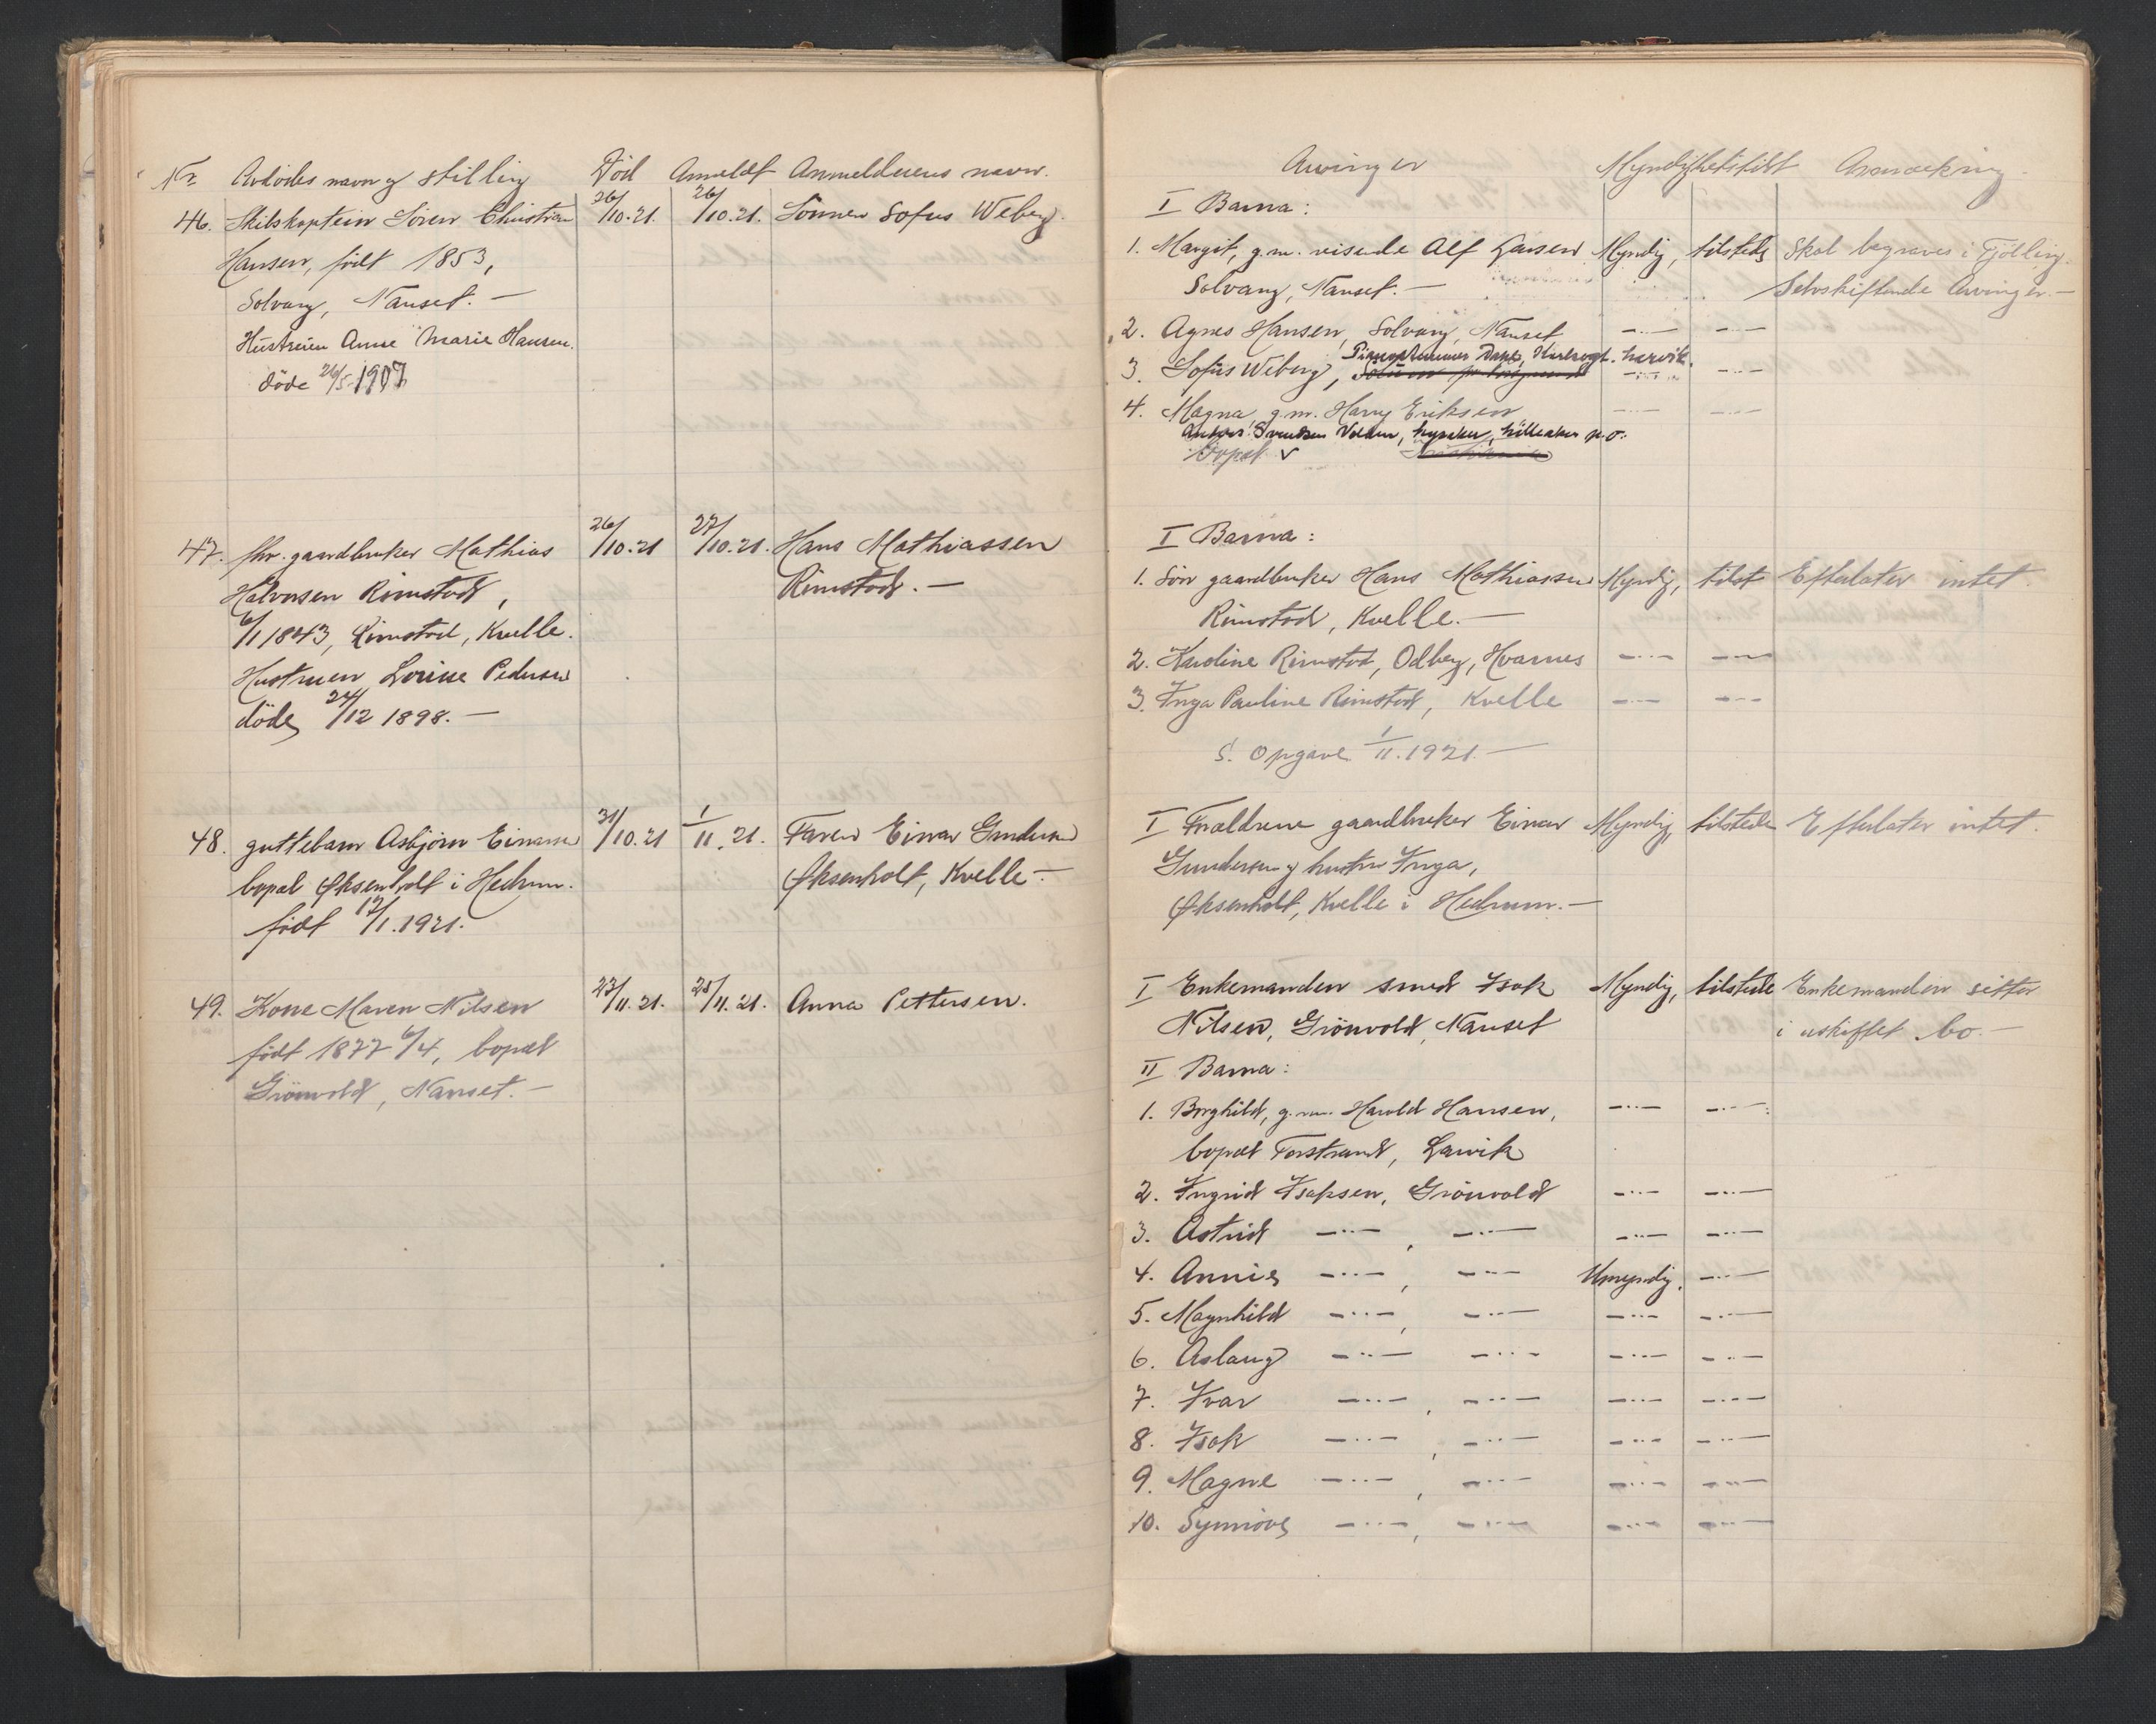 Nr. Avdødes navn og stilling Død Anmeldt Anmelderens navn.
46. Skibskaptein Sören Christian 26/10.21. 26/10.21. Sönnen Sofus Weberg.
Hansen, født 1853,
Solvang, Nanset. —
Hustruen Anne Marie Hansen.
døde 26/5-1907
47. fhv. gaardbruker Mathias 26/10.21 27/10.21. Hans Mathiassen
Halvorsen Rimstad, Rimstad. —
6/1 1843, Rimstad, Kvelle.
Hustruen Lorine Pedersen
døde 24/12 1898. —
48. guttebarn Asbjørn Einarsen 31/10.21 1/11.21. Faren Einar Gundersen
bopæl Øksenholt i Hedrum. Øksenholt, Kvelle. —
født 17/1.1921.
49. Kone Maren Nilsen 23/11.21. 25/11.21. Anna Pettersen.
født 1877 6/4, bopæl
Grönvold, Nanset. —
Arvinger Myndighetstid Anmerkning.
I Barna:
1. Margit, g.m. visende Alf Larsen Myndig, tilstede Skal begraves i Tjölling.
Solvang, Nanset. — Selvskiftende Arvinger. —
2. Agnes Hansen, Solvang, Nanset —··— —··—
3. Sofus Weberg, —··— —··—
4. Magna, g.m. Harry Eriksen —··— —··—
bopæl
I Barna:
1. Sön gaardbruker Hans Mathiassen Myndig, tilst Efterlater intet.
Rimstad, Kvelle. —
2. Karoline Rimstad, Odberg, Hvarnes —··— —··—
3. Inga Pauline Rimstad, Kvelle —··— —··—
S. Opgave 1/11.1921. —
I Forældrene gaardbruker Einar Myndig, tilstede Efterlater intet.
Gundersen og hustru Inga,
Øksenholt, Kvelle i Hedrum. —
I Enkemanden smed Isak Myndig, tilstede Enkemanden sitter
Nilsen, Grönvold, Nanset i uskiftet bo. —
II Barna:
1. Borghild, g.m. Harold Hansen, —··— —··—
bopæl Torstrand, Larvik
2. Ingrid Isaksen, Grönvold —··— —··—
3. Astrid —··—, —··— —··— —··—
4. Annie —··—, —··— Umyndig, —··—
5. Magnhild —··—, —··— —··— —··—
6. Aslaug —··— —··— —··— —··—
7. Ivar —··—, —··— —··— —··—
8. Isak —··—, —··— —··— —··—
9. Magne —··—, —··— —··— —··—
10. Synnöve —··—, —··— —··— —··—